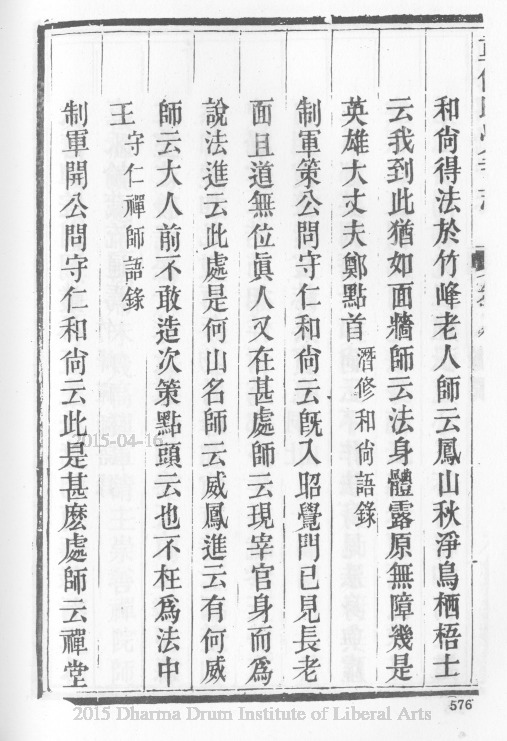 和尙得法於竹峰老人師云鳳山秋淨鳥栖梧士
云我到此猶如面牆師云法身體露原無障幾是
英雄大丈夫鄭點首潛修和尙語錄
制軍策公問守仁和尙云旣入昭覺門已見長老
面且道無位眞人又在甚處師云現宰官身而爲
說法進云此處是何山名師云威鳳進云有何威
師云大人前不敢造次策點頭云也不枉爲法中
王守仁禪師語錄
制軍開公問守仁和尙云此是甚麽處師云禪堂
576
2015-04-16
2015 Dharma Drum Institute of Liberal Arts